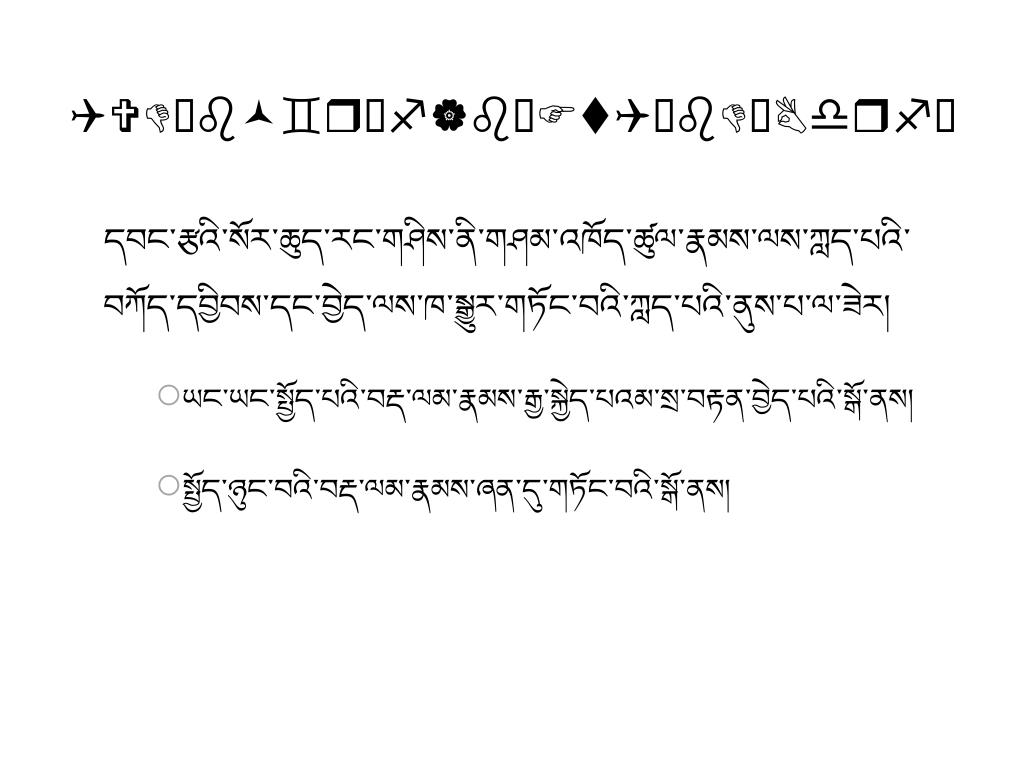 དབང་རྩའི་སོར་ཆུད་རང་གཤིས་ནི་གཤམ་འཁོད་ཚུལ་རྣམས་ལས་ཀླད་པའི་
བཀོད་དབྱིབས་དང་བྱེད་ལས་ཁ་སྒྱུར་གཏོང་བའི་ཀླད་པའི་ནུས་པ་ལ་ཟེར།
ཡང་ཡང་སྤྱོད་པའི་བརྡ་ལམ་རྣམས་རྒྱ་སྐྱེད་པའམ་སྲ་བརྟན་བྱེད་པའི་སྒོ་ནས།
སྤྱོད་ཉུང་བའི་བརྡ་ལམ་རྣམས་ཞན་དུ་གཏོང་བའི་སྒོ་ནས།